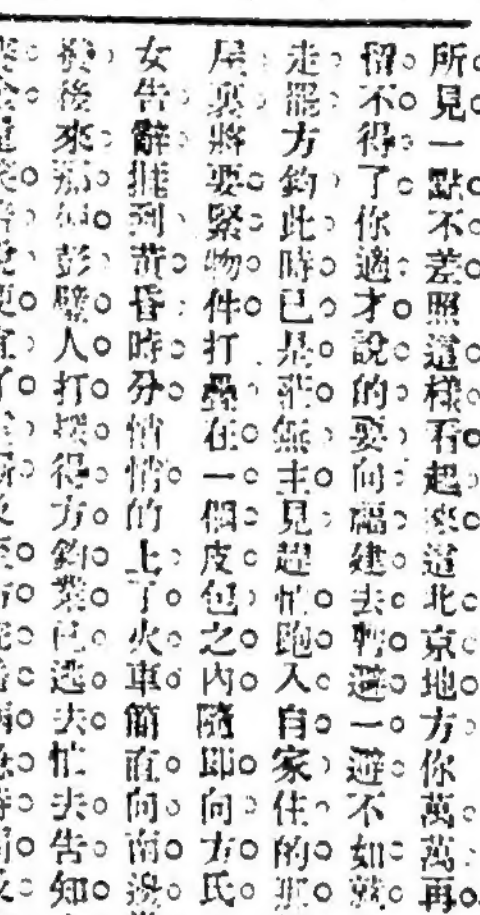 所見一點不差照這樣看起來這北京地方你萬萬再
留不得了你適才說的要向福建去暫避一避不如就
走罷方鈞此時已是莊無主見趕忙跑入自家住的那
屋裏將要緊物件打疊在一個皮包之內隨即向方氏
女告辭捱到黃昏時分悄悄的上了火車簡直向南邊
後來那個彭璧人打探得方鈞業已逃去忙去告知